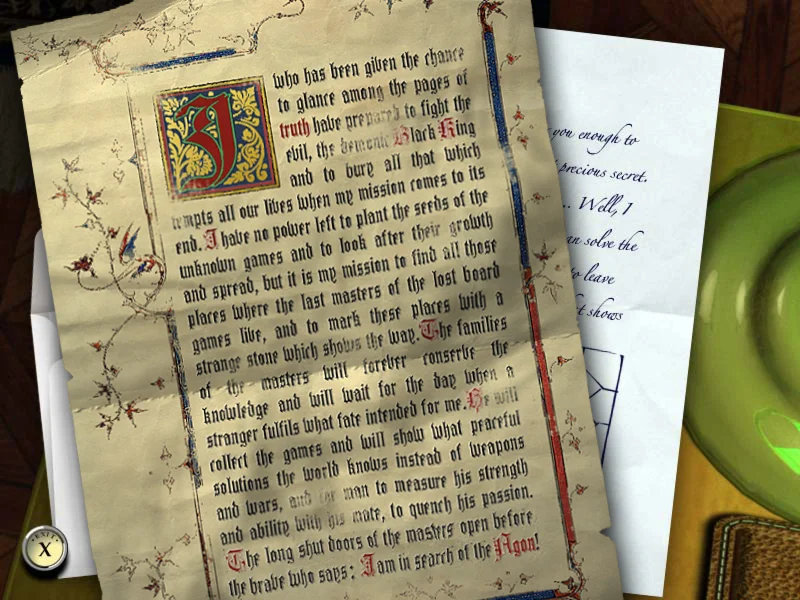 I who has been given the chance
to glance among the pages of
truth have prepared to fight the
evil, the demonic Black King
and to bury all that which
tempts all our lives when my mission comes to its
end. I have no power left to plant the seeds of the
unknown games and to look after their growth
and spread, but it is my mission to find all those
places where the last masters of the lost board
games live, and to mark these places with a
strange stone which shows the way. The families
of the masters will forever conserve the
knowledge and will wait for the day when a
stranger fulfils what fate intended for me. He will
collect the games and will show what peaceful
solutions the world knows instead of weapons
and wars, and for man to measure his strength
and ability with his mate, to quench his passion.
The long shut doors of the masters open before
the brave who says: I am in search of the Agon!
you enough to
precious secret.
... Well, I
can solve the
to leave
t shows
EXIT
X